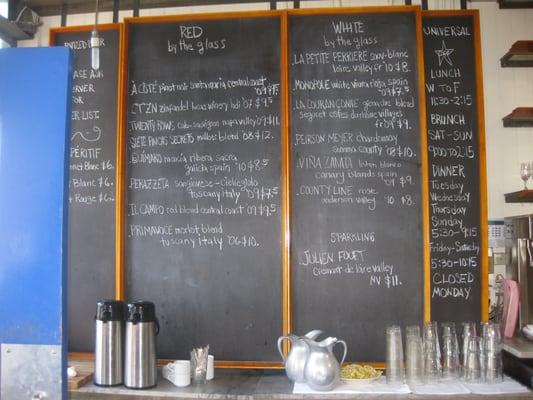 ASK
LIST.
APÉRITIF
Blanc $6.
Blanc $6.
Rouge $6.
RED
by the glass
À CÔTÉ pinot noir central coast
'09 $7.5
CTZN zinfandel '07 $9.5
TWENTY ROWS cab-sauvignon napa valley $11
SIETE PINCAS SECRETS malbec blend '08 $12.
GUIMARO mencía ribera sacra
galicia spain '10 $8.5
PERAZZETA sangiovese-ciliegiolo
tuscany italy '09 $7.5
IL CAMPO red blend central coast '09 $9.5
PRIMAVOCE merlot blend
tuscany italy '06 $10.
WHITE
by the glass
LA PETITE PERRIERE sauv-blanc
loire valley fr '10 $8
MONOPOLE white viura rioja spain
'09 $7.5
blend
fr '09 $9.
PEIRSON MEYER chardonnay
sonoma county '08 $10.
VIÑA ZANATA listan blanco
canary islands spain
'09 $9.
COUNTY LINE rose
anderson valley '10 $8.
SPARKLING
JULIEN FOUET
Crémant de loire valley
NV $11.
UNIVERSAL
LUNCH
W TO F
11:30-2:15
BRUNCH
SAT-SUN
9:00 TO 2:15
DINNER
Tuesday
Wednesday
Thursday
Sunday
5:30-9:15
Friday-Saturday
5:30-10:15
CLOSED
MONDAY